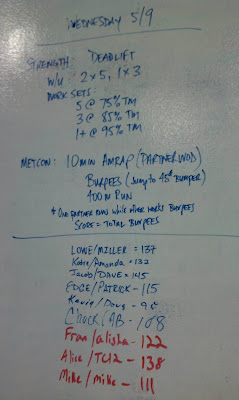 WEDNESDAY 5/9
STRENGTH: DEADLIFT
W/U 2x5, 1x3
WORK SETS:
5 @ 75% TM
3 @ 85% TM
1+ @ 95% TM
METCON: 10 min AMRAP (PARTNER WOD)
BURPEES (Jump to 45# BUMPER)
400 m RUN
* One PARTNER RUNS while other works BURPEES
SCORE = TOTAL BURPEES
LOWE/MILLER = 137
Katie/Amanda = 132
Jacob/DAVE = 145
EDGE/PATRICK - 115
Kevin/Doug - 98
Chuck/AB - 108
Fran/alisha - 122
Alice/ - 138
Mike/Mike - 111